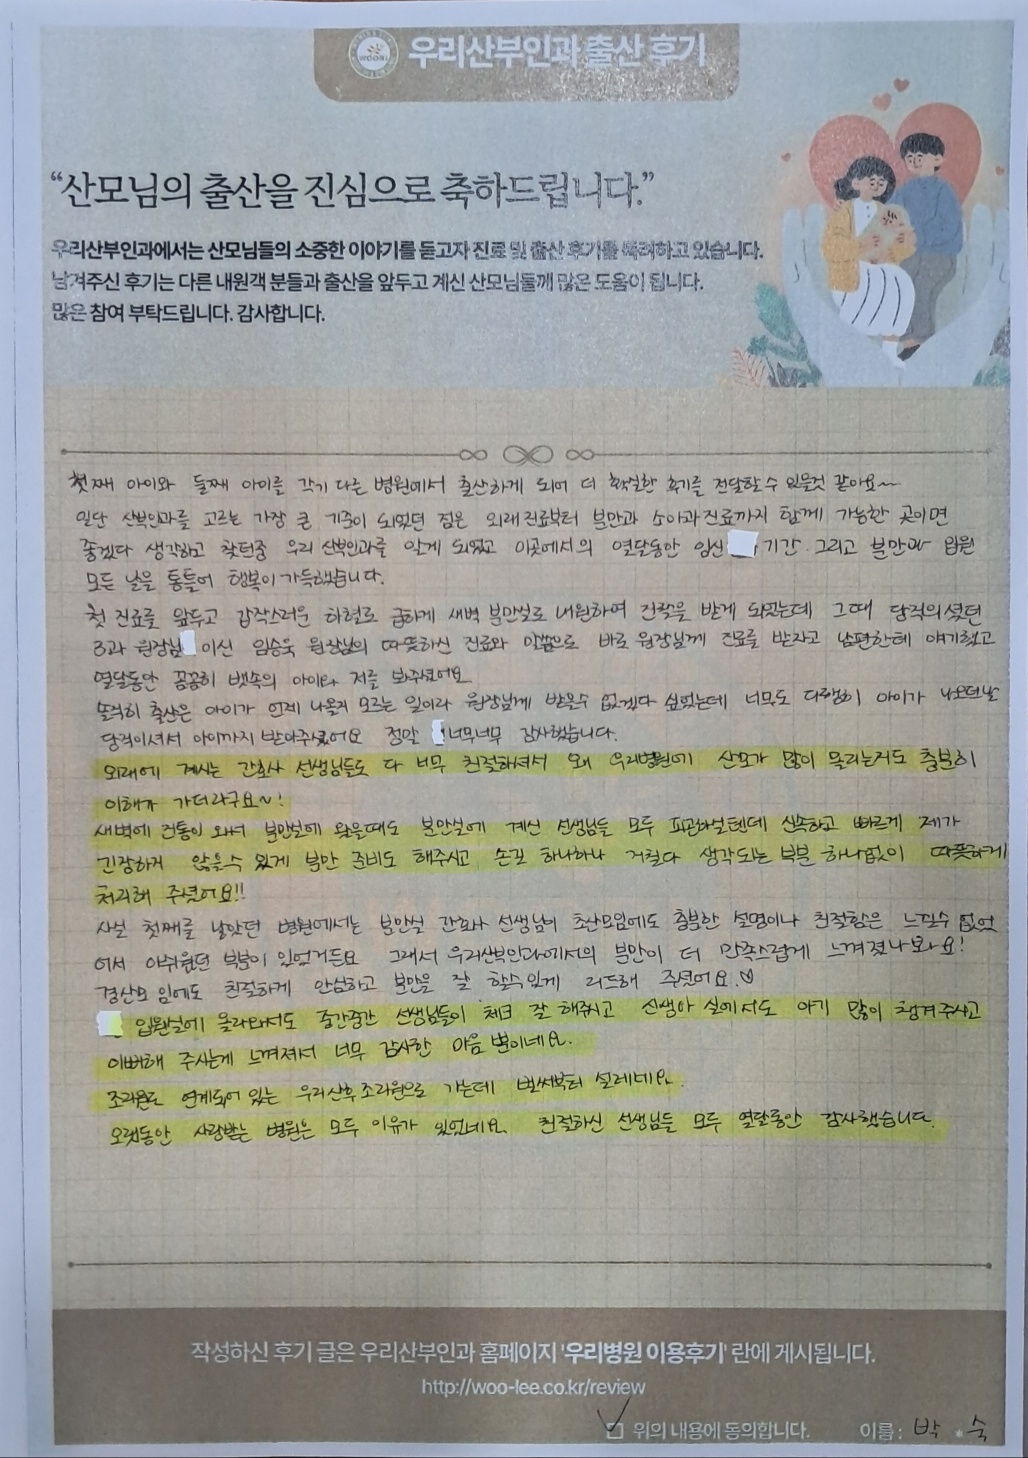 우리산부인과 출산 후기
“산모님의 출산을 진심으로 축하드립니다.”
우리산부인과에서는 산모님들의 소중한 이야기를 듣고자 진료 및 출산 후기를 독려하고 있습니다.
남겨주신 후기는 다른 내원객 분들과 출산을 앞두고 계신 산모님들께 많은 도움이 됩니다.
많은 참여 부탁드립니다. 감사합니다.
첫째 아이와 둘째 아이를 각기 다른 병원에서 출산하게 되어 더 확실한 후기를 전달할 수 있을것 같아요~
일단 산부인과를 고르는 가장 큰 기준이 되었던 점은 외래진료부터 분만과 소아과진료까지 함께 가능한 곳이면
좋겠다 생각하고 찾던중 우리 산부인과를 알게 되었고 이곳에서의 열달동안 임신 기간 그리고 분만과 입원
모든 날을 통틀어 행복이 가득했습니다.
첫 진료를 앞두고 갑작스러운 하혈로 급하게 새벽 분만실로 내원하여 진찰을 받게 되었는데 그때 당직의셨던
3과 원장님 이신 임승욱 원장님의 따뜻하신 진료와 말씀으로 바로 원장님께 진료를 받자고 남편한테 얘기했고
열달동안 꼼꼼히 뱃속의 아이와 저를 봐주셨어요
솔직히 출산은 아이가 언제 나올지 모르는 일이라 원장님께 받을수 없겠다 싶었는데 너무도 다행히 아이가 나오던날
당직이셔서 아이까지 받아주셨어요 정말 너무너무 감사했습니다.
외래에 계시는 간호사 선생님들도 다 너무 친절하셔서 왜 우리병원에 산모가 많이 몰리는지도 충분히
이해가 가더라구요~!
새벽에 진통이 와서 분만실에 왔을때도 분만실에 계신 선생님들 모두 피곤하실텐데 신속하고 빠르게 제가
긴장하지 않을수 있게 분만 준비도 해주시고 손길 하나하나 거칠다 생각되는 부분 하나없이 따뜻하게
처리해 주셨어요!!
사실 첫째를 낳았던 병원에서는 분만실 간호사 선생님이 초산모임에도 충분한 설명이나 친절함은 느낄수 없었
어서 아쉬웠던 부분이 있었거든요 그래서 우리산부인과에서의 분만이 더 만족스럽게 느껴졌나봐요!
경산모 임에도 친절하게 안심하고 분만을 잘 할수있게 리드해 주셨어요.♡
입원실에 올라와서도 중간중간 선생님들이 체크 잘 해주시고 신생아 실에서도 아기 많이 챙겨주시고
이뻐해 주시는게 느껴져서 너무 감사한 마음 뿐이네요.
조리원도 연계되어 있는 우리산후조리원으로 가는데 벌써부터 설레네요.
오랫동안 사랑받는 병원은 모두 이유가 있었네요. 친절하신 선생님들 모두 열달동안 감사했습니다.
작성하신 후기 글은 우리산부인과 홈페이지 '우리병원 이용후기' 란에 게시됩니다.
http://woo-lee.co.kr/review
위의 내용에 동의합니다. 이름 : 박 * 숙